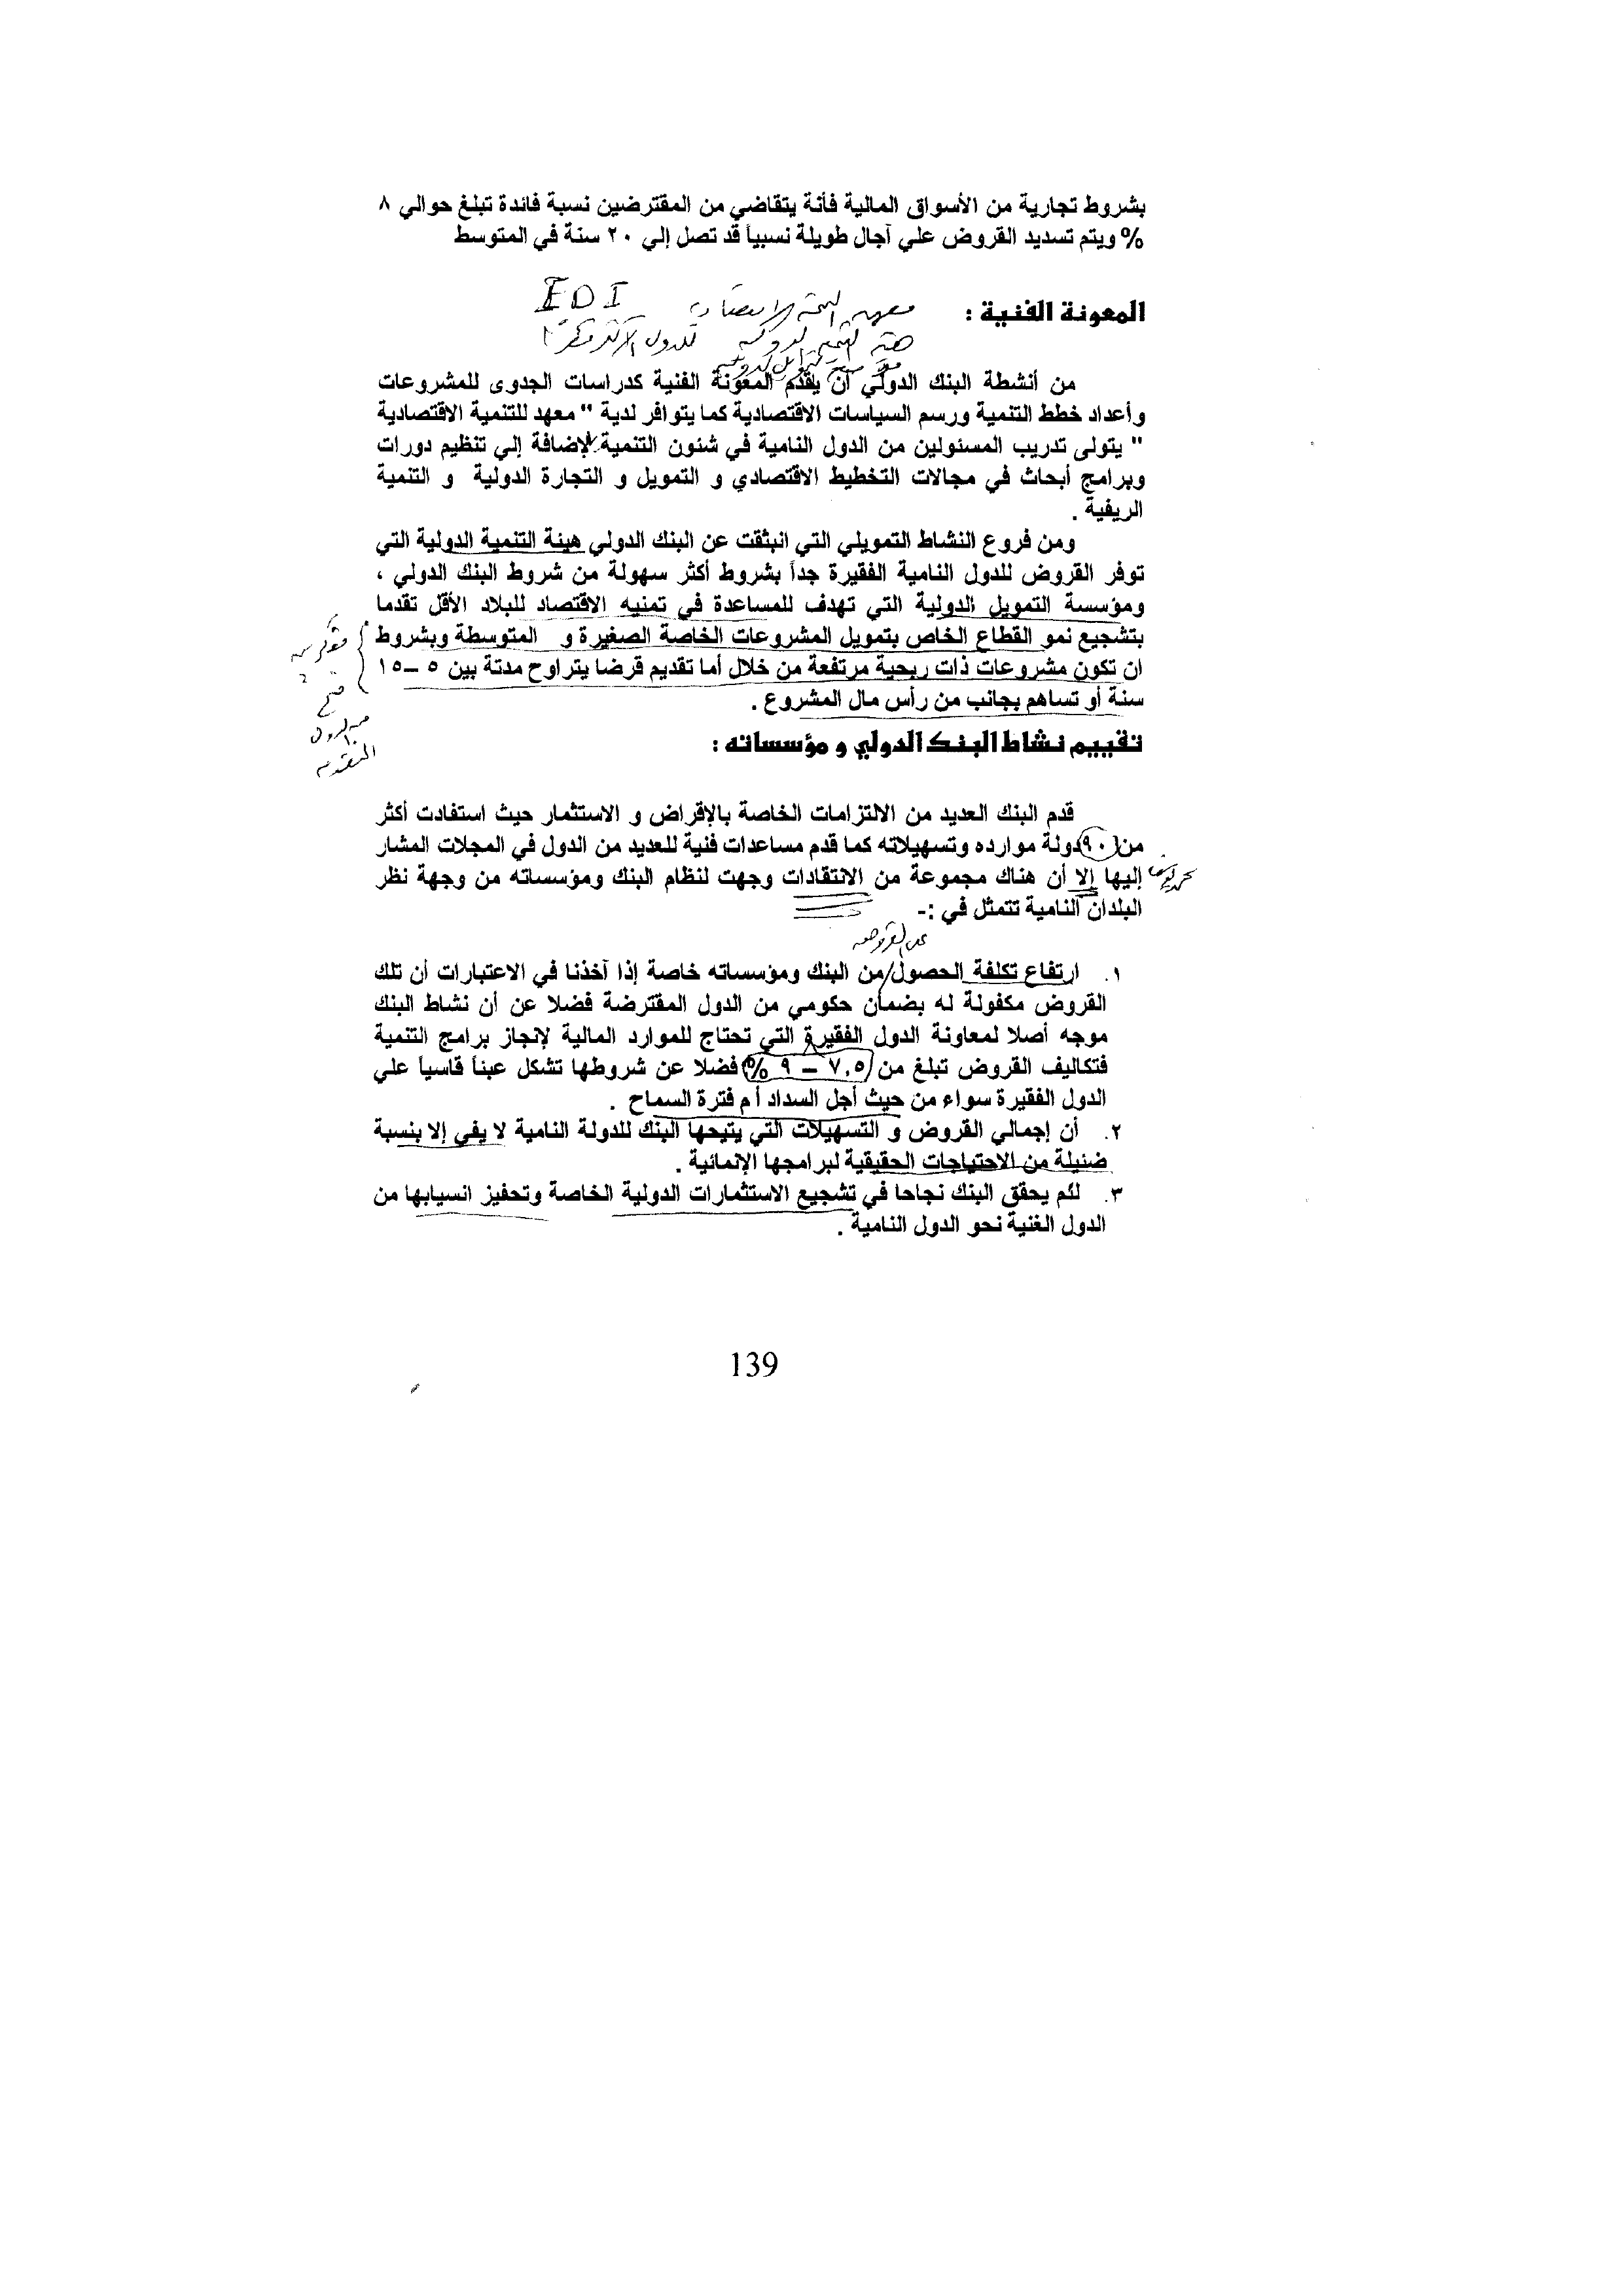 بشروط تجارية من الأسواق المالية فأنة يتقاضي من المقترضين نسبة فائدة تبلغ حوالي ٨
% ويتم تسديد القروض علي آجال طويلة نسبياً قد تصل إلي ٢٠ سنة في المتوسط
المعونة الفنية :
معهد التنمية الاقتصادية EDI
هيئة التنمية الدولية للدول الأكثر فقرا
من أنشطة البنك الدولي أن يقدم المعونة الفنية كدراسات الجدوى للمشروعات
وأعداد خطط التنمية ورسم السياسات الاقتصادية كما يتوافر لدية " معهد للتنمية الاقتصادية
" يتولى تدريب المسئولين من الدول النامية في شئون التنمية لإضافة إلي تنظيم دورات
وبرامج أبحاث في مجالات التخطيط الاقتصادي و التمويل و التجارة الدولية و التنمية
الريفية .
ومن فروع النشاط التمويلي التي انبثقت عن البنك الدولي هيئة التنمية الدولية التي
توفر القروض للدول النامية الفقيرة جداً بشروط أكثر سهولة من شروط البنك الدولي ،
ومؤسسة التمويل الدولية التي تهدف للمساعدة في تمنيه الاقتصاد للبلاد الأقل تقدما
بتشجيع نمو القطاع الخاص بتمويل المشروعات الخاصة الصغيرة و المتوسطة وبشروط
ان تكون مشروعات ذات ربحية مرتفعة من خلال أما تقديم قرضا يتراوح مدتة بين ٥ – ١٥
سنة أو تساهم بجانب من رأس مال المشروع .
من الدول
المتقدمة
تقييم نشاط البنك الدولي و مؤسساته :
قدم البنك العديد من الالتزامات الخاصة بالإقراض و الاستثمار حيث استفادت أكثر
من (٩٠) دولة موارده وتسهيلاته كما قدم مساعدات فنية للعديد من الدول في المجلات المشار
إليها إلا أن هناك مجموعة من الانتقادات وجهت لنظام البنك ومؤسساته من وجهة نظر
البلدان النامية تتمثل في :-
على القروض
١. ارتفاع تكلفة الحصول/من البنك ومؤسساته خاصة إذا آخذنا في الاعتبارات أن تلك
القروض مكفولة له بضمان حكومي من الدول المقترضة فضلا عن أن نشاط البنك
موجه أصلا لمعاونة الدول الفقيرة التي تحتاج للموارد المالية لإنجاز برامج التنمية
فتكاليف القروض تبلغ من (٧,٥ – ٩ %) فضلا عن شروطها تشكل عبئاً قاسياً علي
الدول الفقيرة سواء من حيث أجل السداد أم فترة السماح .
٢. أن إجمالي القروض و التسهيلات التي يتيحها البنك للدولة النامية لا يفي إلا بنسبة
ضئيلة من الاحتياجات الحقيقية لبرامجها الإنمائية .
٣. لئم يحقق البنك نجاحا في تشجيع الاستثمارات الدولية الخاصة وتحفيز انسيابها من
الدول الغنية نحو الدول النامية .
139